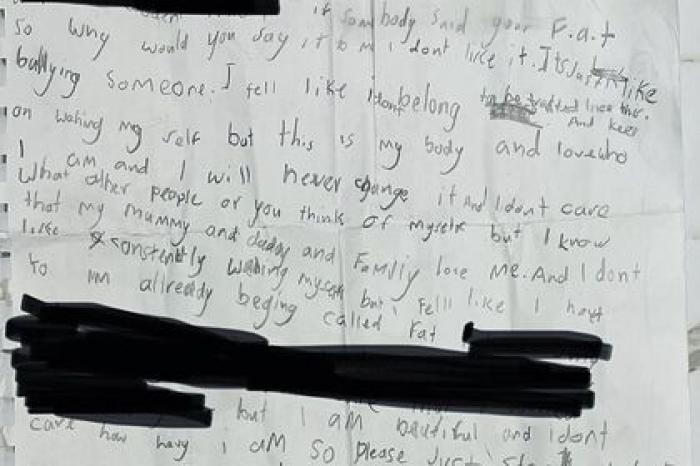 if sombody said your F.a.t
so why would you say it to m I dont like it. Its Just like
bullying someone. I fell like i dont belong to be treated like this.
And keep
on wahing my self but this is my body and love who
I am and I will never change it And I dont care
What other people or you think of myselfe but I know
that my mummy and daddy and Family love me. And I dont
like constently wahing myself but i fell like I haft
to im allready beging called Fat
but I am beautiful and I dont
care how hevy i am so please Just